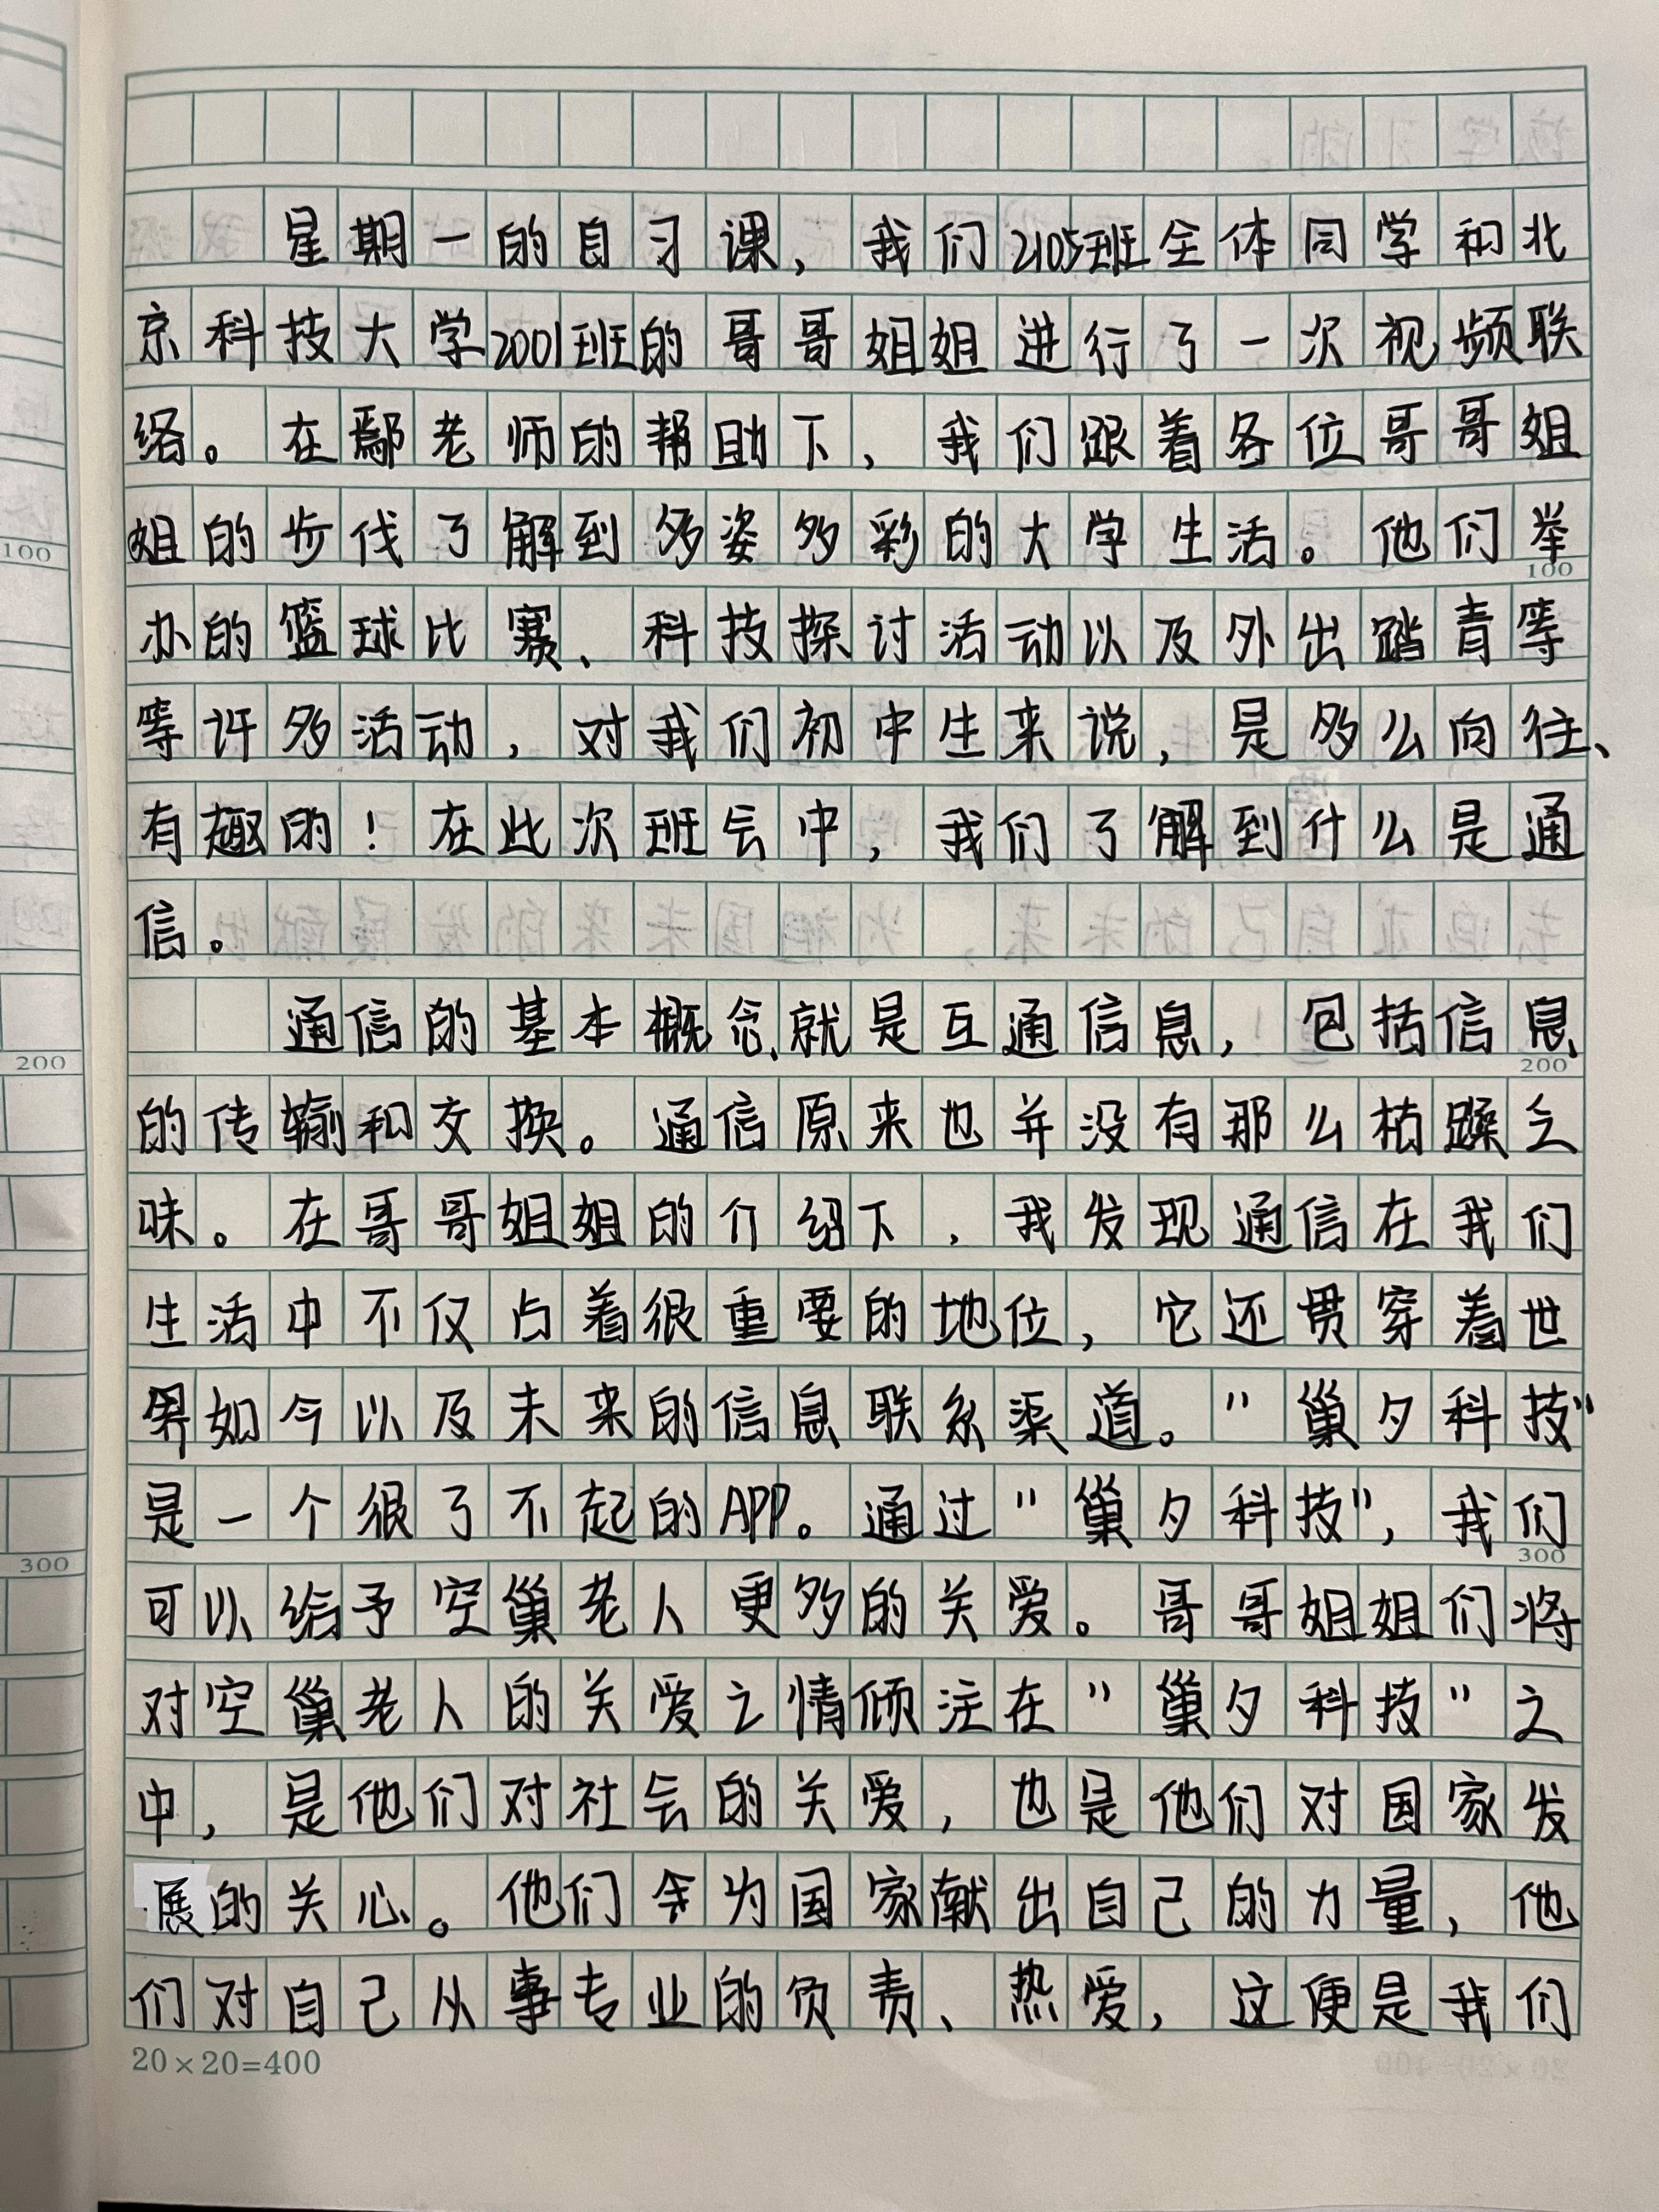 星期一的自习课，我们2105班全体同学和北
京科技大学2001班的哥哥姐姐进行了一次视频联
络。在鄢老师的帮助下，我们跟着各位哥哥姐
姐的步伐了解到多姿多彩的大学生活。他们举
100
办的篮球比赛、科技探讨活动以及外出踏青等
等许多活动，对我们初中生来说，是多么向往、
有趣的！在此次班会中，我们了解到什么是通
信。
通信的基本概念就是互通信息，包括信息
200
的传输和交换。通信原来也并没有那么枯躁乏
味。在哥哥姐姐的介绍下，我发现通信在我们
生活中不仅占着很重要的地位，它还贯穿着世
界如今以及未来的信息联系渠道。“巢夕科技”
是一个很了不起的APP。通过“巢夕科技”，我们
300
可以给予空巢老人更多的关爱。哥哥姐姐们将
对空巢老人的关爱之情倾注在“巢夕科技”之
中，是他们对社会的关爱，也是他们对国家发
展的关心。他们会为国家献出自己的力量，他
们对自己从事专业的负责、热爱，这便是我们
20×20=400
100
200
300